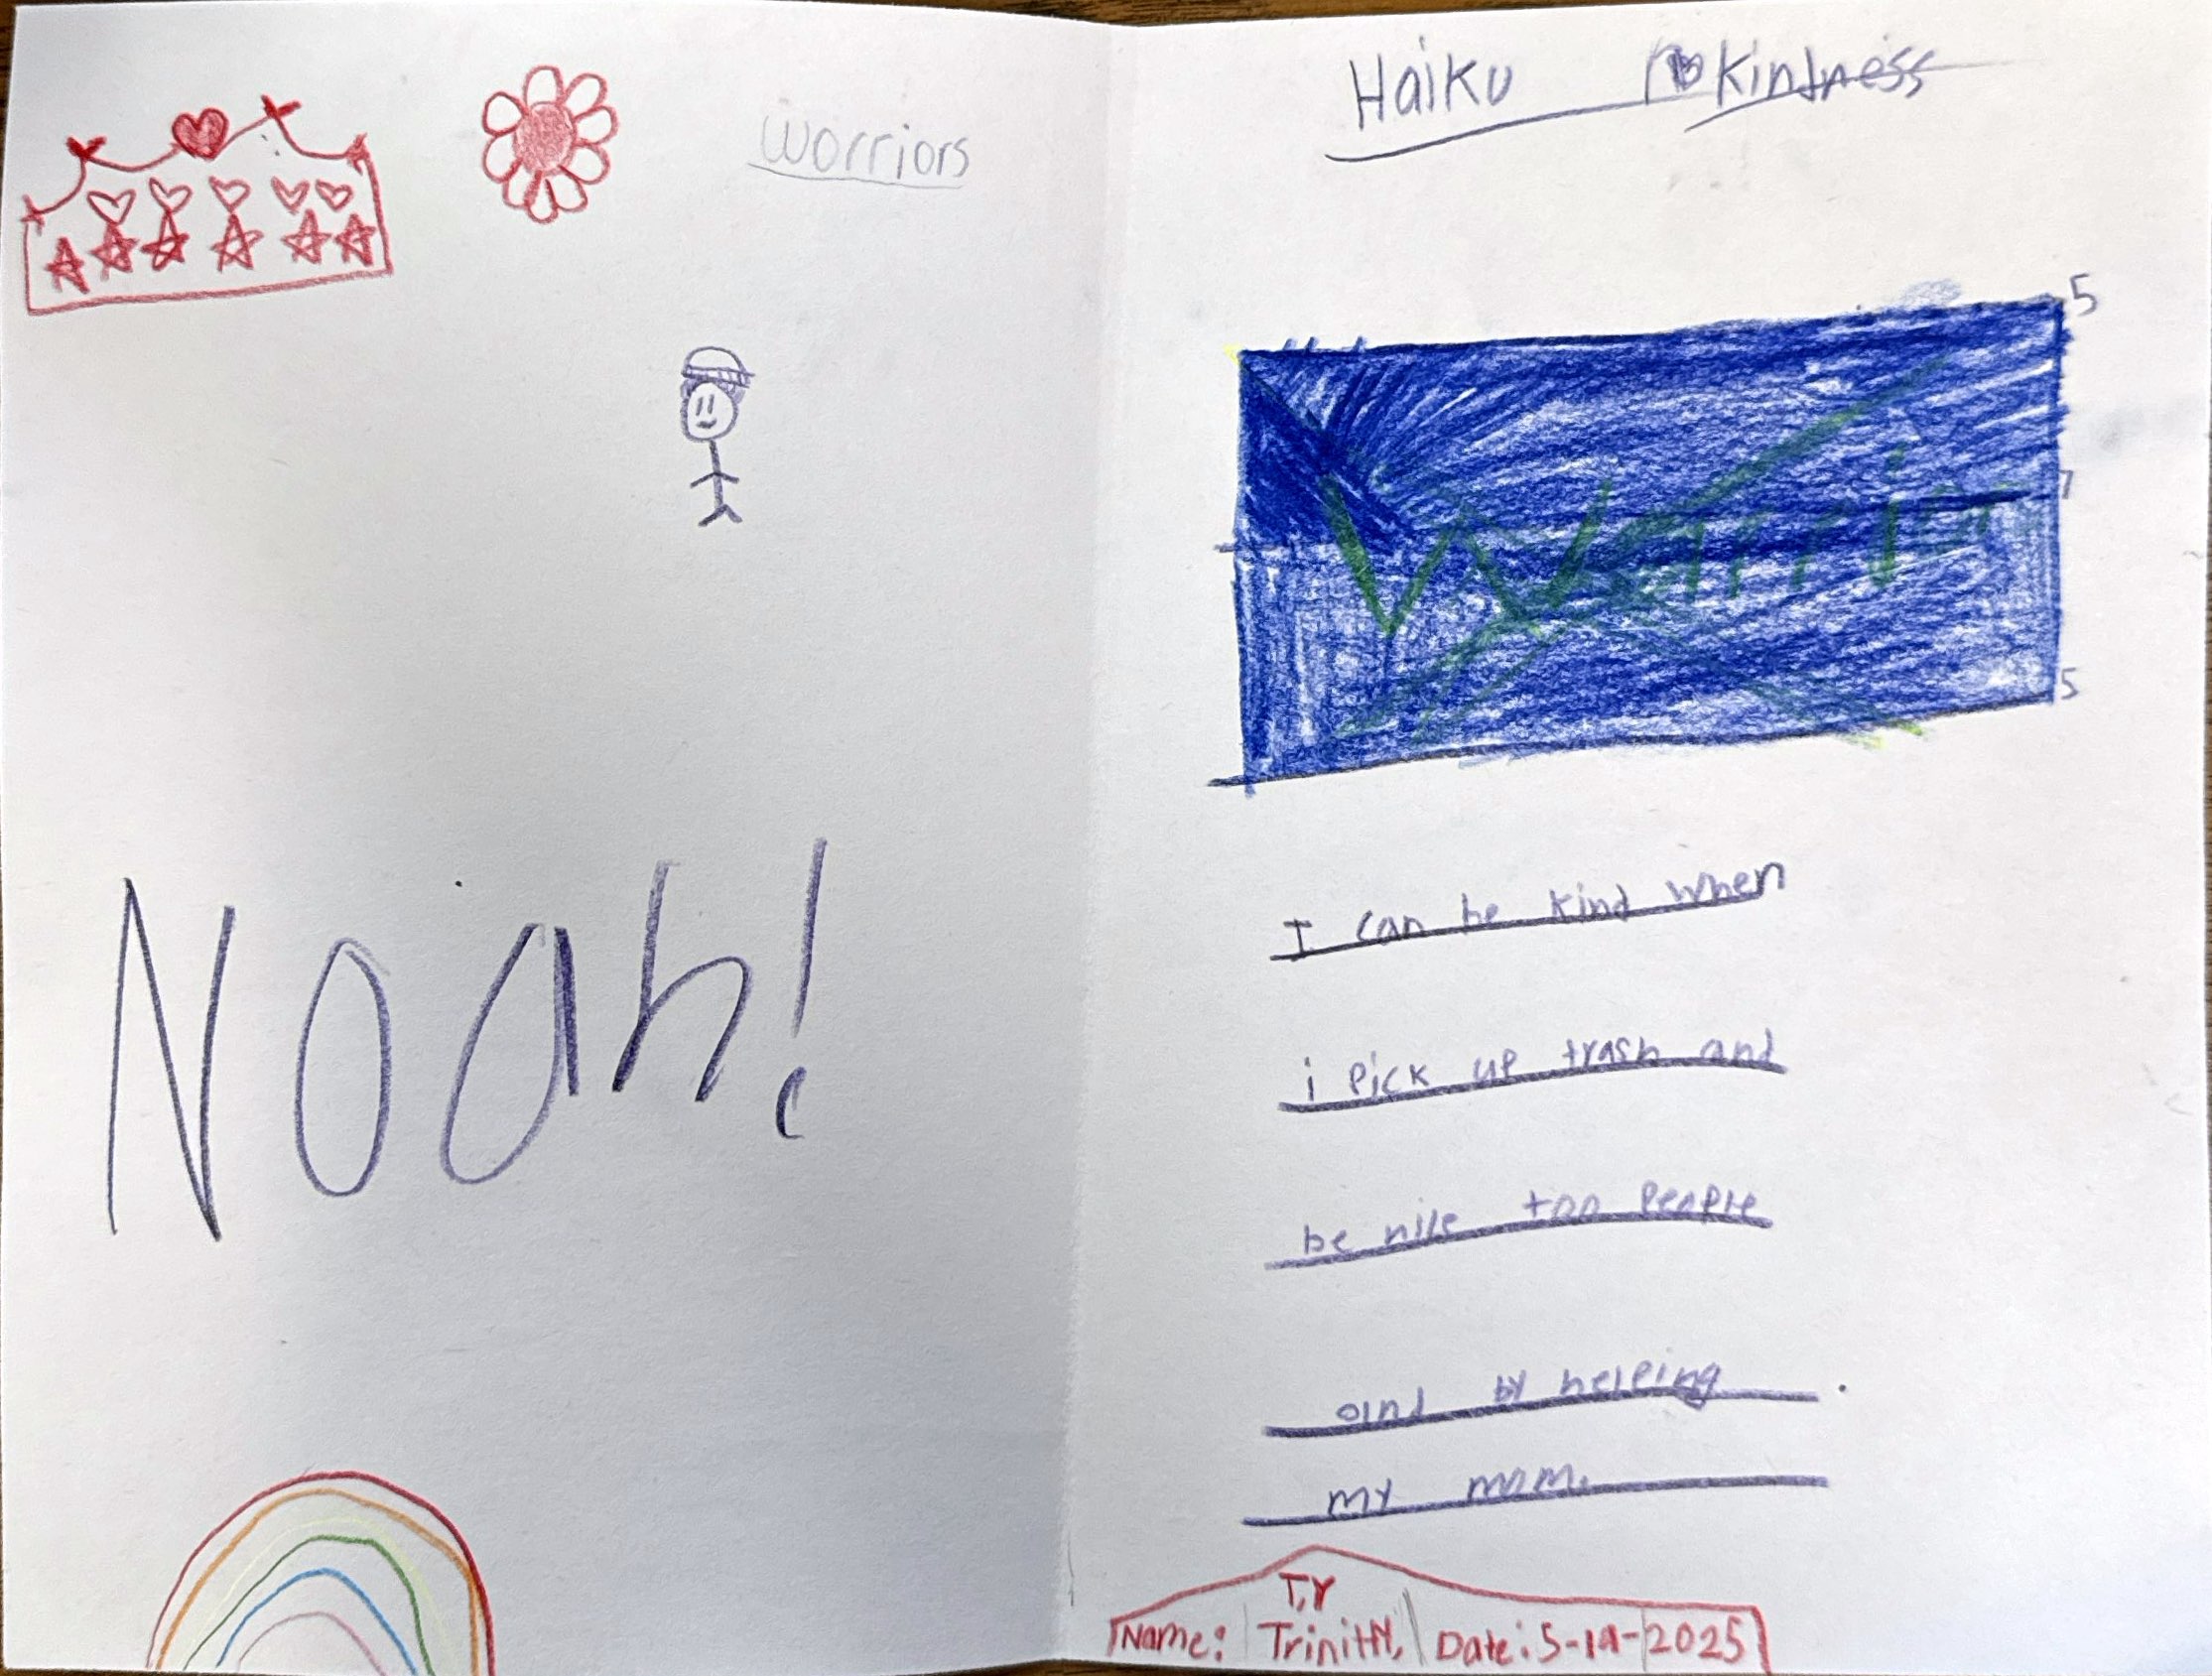 Worriors
Noah!
Haiku Kindness
5
Warrior
7
5
I can be kind when
i pick up trash and
be nice too people
and by helping
my mom.
T,Y
Name: Trinity, Date: 5-19-2025